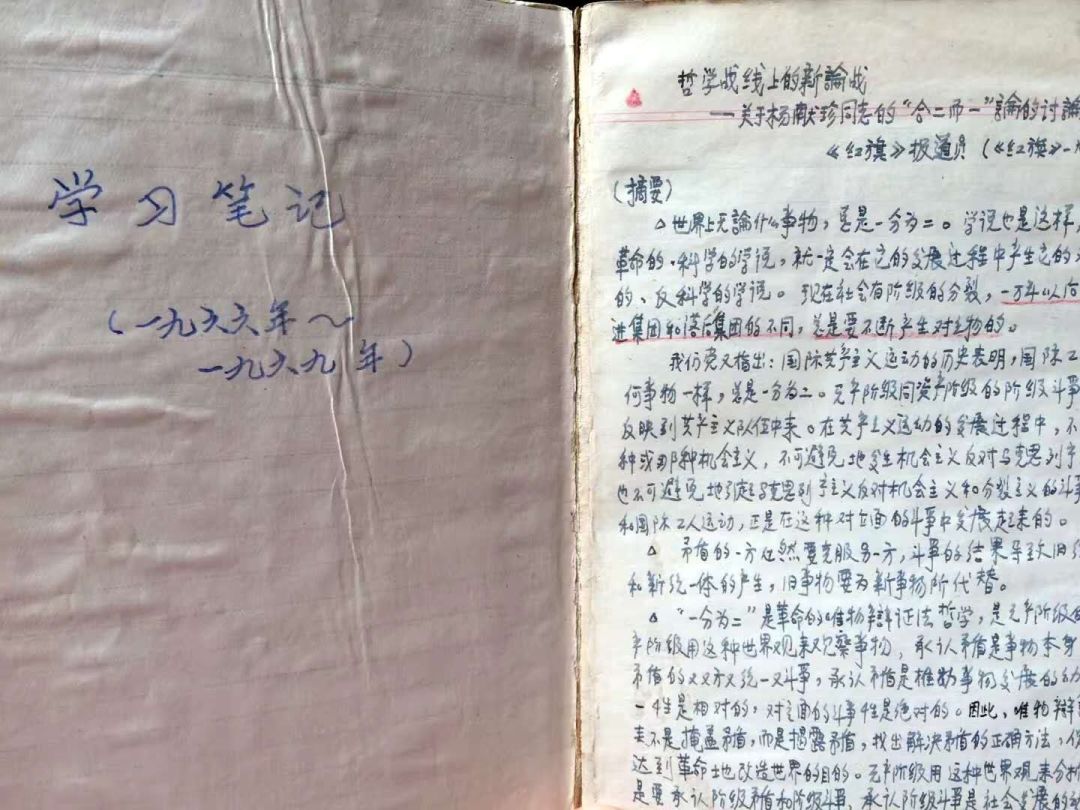 学习笔记
(一九六六年～
一九六九年)
哲学战线上的新論战
——关于杨献珍同志的“合二而一”論的讨論
《红旗》报道员(《红旗》一九
(摘要)
△世界上无論什么事物,总是一分为二。学说也是这样,
革命的·科学的学说,就一定会在它的发展过程中产生它的
的、反科学的学说。现在社会有阶级的分裂,一万年以后
进集团和落后集团的不同,总是要不断产生对立物的。
我们党又指出:国际共产主义运动的历史表明,国际工
何事物一样,总是一分为二。无产阶级同资产阶级的阶级斗争
反映到共产主义队伍中来。在共产主义运动的发展过程中,不
种或那种机会主义,不可避免地发生机会主义反对马克思列宁
也不可避免地引起马克思列宁主义反对机会主义和分裂主义的斗争
和国际工人运动,正是在这种对立面的斗争中发展起来的。
△矛盾的一方必然要克服另一方,斗争的结果导致旧统
和新统一体的产生,旧事物要为新事物所代替。
△“一分为二”是革命的唯物辩证法哲学,是无产阶级的
产阶级用这种世界观来观察事物,承认矛盾是事物本身
矛盾的双方又统一又斗争,承认矛盾是推动事物发展的动
一性是相对的,对立面的斗争性是绝对的。因此,唯物辩证
来不是掩盖矛盾,而是揭露矛盾,找出解决矛盾的正确方法,
达到革命地改造世界的目的。无产阶级用这种世界观来分析
是要承认阶级矛盾和阶级斗争,承认阶级斗争是社会发展的动